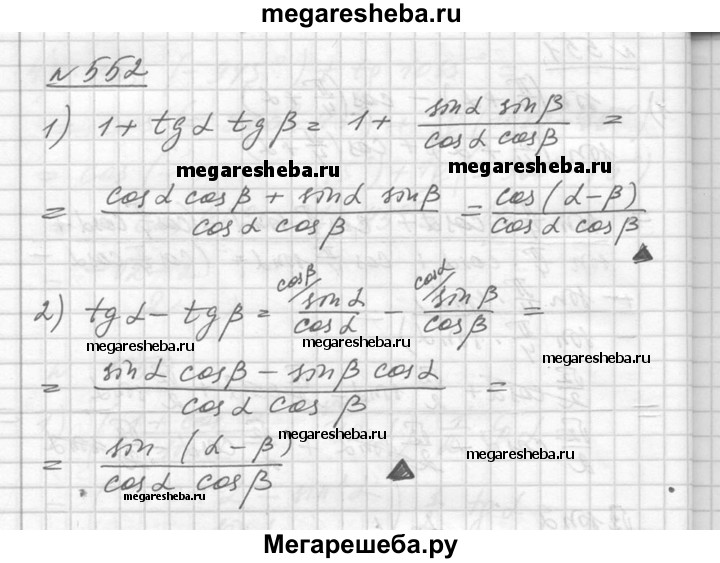 megaresheba.ru
№ 552
1) 1 + tg α tg β = 1 + (sin α sin β)/(cos α cos β) =
megaresheba.ru megaresheba.ru
= (cos α cos β + sin α sin β)/(cos α cos β) = cos (α − β)/(cos α cos β) ▲
2) tg α − tg β = cos β/ sin α/cos α − cos α/ sin β/cos β =
megaresheba.ru megaresheba.ru megaresheba.ru
= (sin α cos β − sin β cos α)/(cos α cos β) =
megaresheba.ru
= sin (α − β)/(cos α cos β) ▲
megaresheba.ru
Мегарешеба.ру